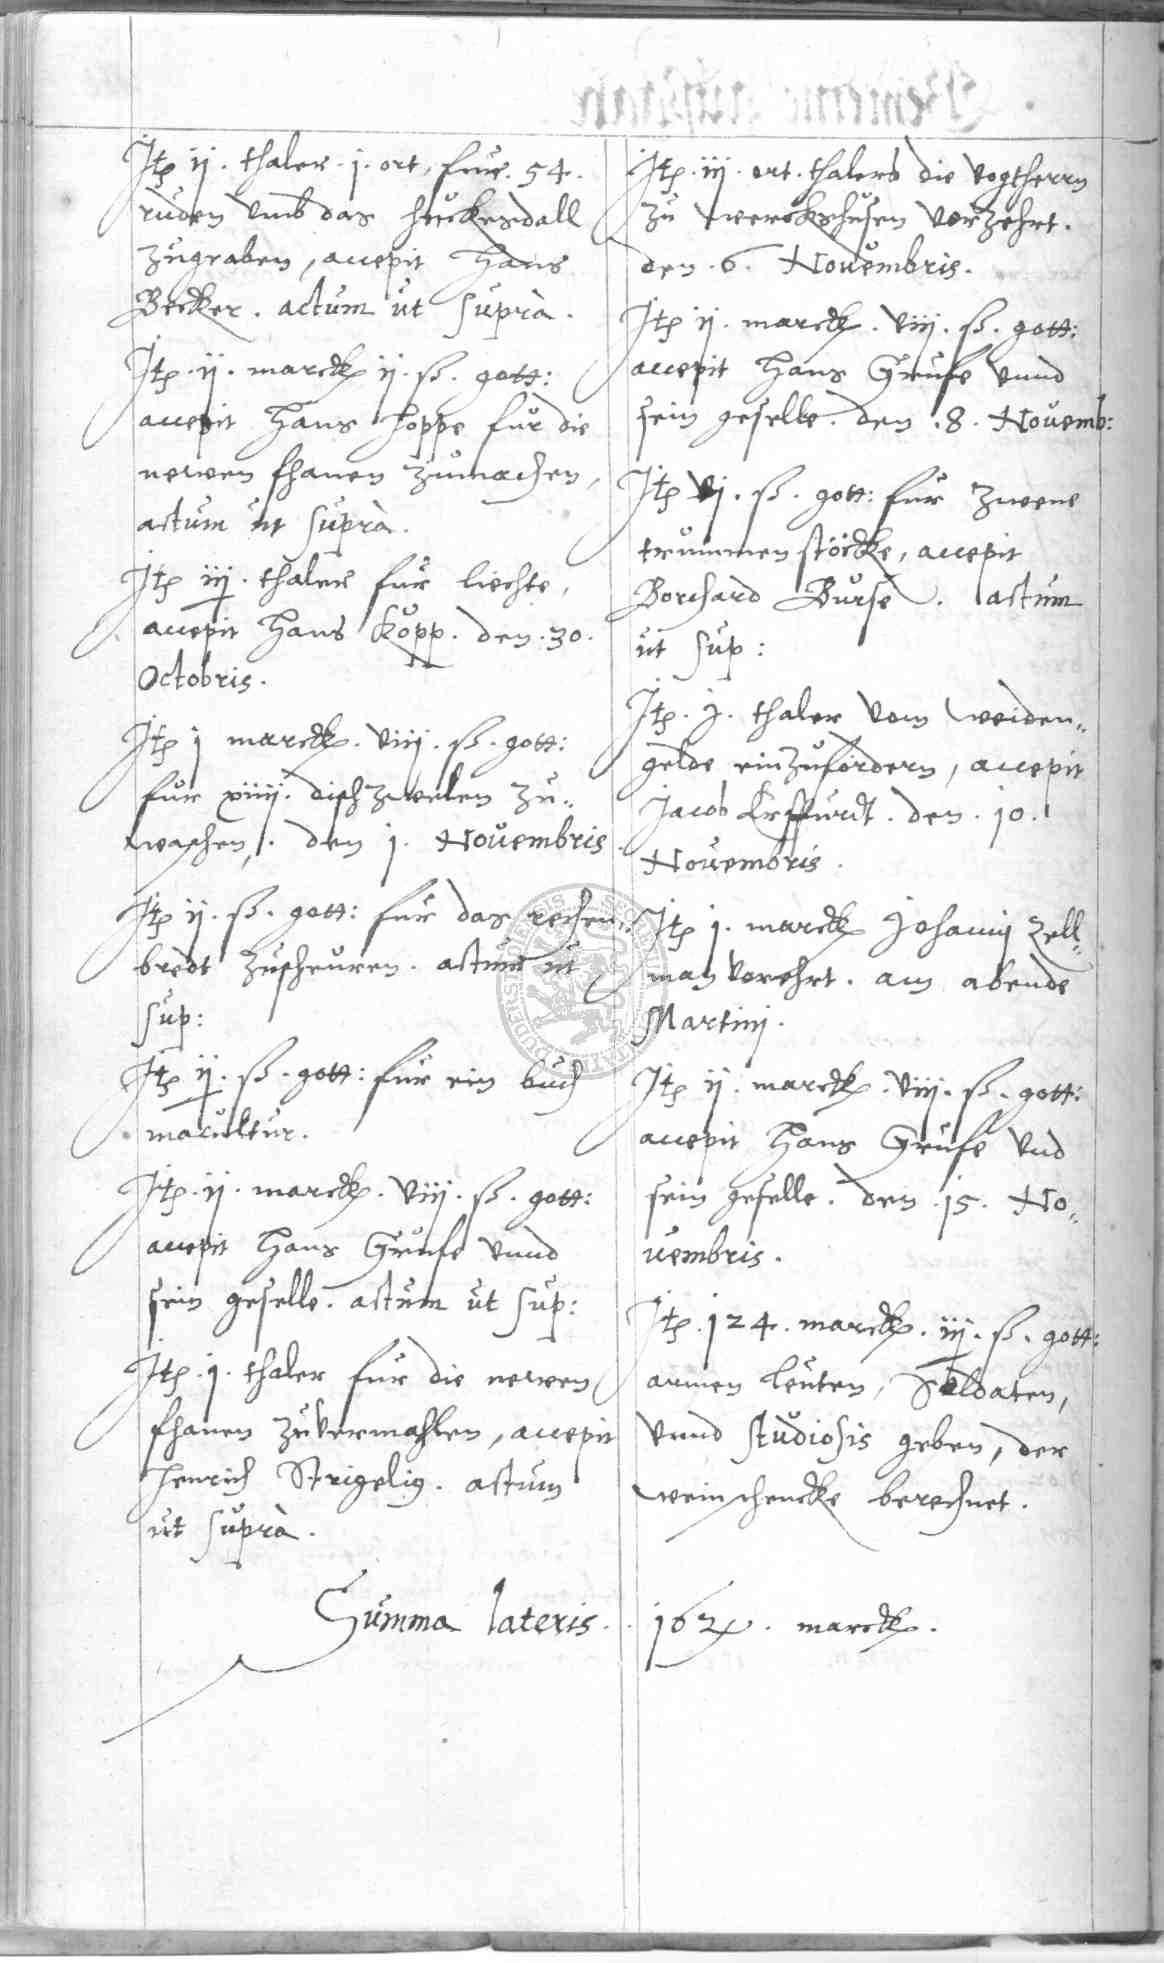 Itp ij. thaler. j. ort, fur. 54.
ruden vmb das heuckesdall
zugraben, accepit Hans
Becker. actum ut suprà.
Itp. ij. marck ij. ß. gott:
accepit Hans Hoppe fur die
newen fhanen zumachen,
actum ut suprà.
Itp iij. thaler fur liechte,
accepit Hans Kopp. den. 30.
Octobris.
Itp j marck. viij. ß. gott:
fur xiiij. dischzwelen zu„
waschen,. den j. Nouembris.
Itp ij. ß. gott: fur das rechen„
bredt zuscheuren. actum ut
sup:
Itp ij. ß. gott: fur ein buch
macultur.
Itp. ij. marck. viij. ß. gott:
accepit Hans Grufe vnnd
sein geselle. actum ut sup:
Itp. j. thaler fur die newen
fhanen zuvermahlen, accepit
Henrich Strigelig. actum
ut suprà.
Itp. iij. ort. thalers die vogtherrn
zu werckshusen vorzehrt.
den. 6. Nouembris.
Itp ij. marck. viij. ß. gott:
accepit Hans Grufe vnnd
sein geselle. den. 8. Nouemb:
Itp vj. ß. gott: fur zwene
trummen stöcke, accepit
Borchard Burse. actum
ut sup:
Itp. j. thaler vom weiden„
gelde einzufordern, accepit
Jacob Erffurdt. den. 10.
Nouembris.
Itp j. marck Johannj Zell„
man vorehrt. am abende
Martinj.
Itp ij. marck. viij. ß. gott:
accepit Hans Grufe vnd
sein geselle. den. 15. No„
uembris.
Itp. 124. marck. iij. ß. gott:
armen leuten, Soldaten,
vnnd studiosis geben, der
weinschencke berechnet.
Summa lateris. . 162. marck.